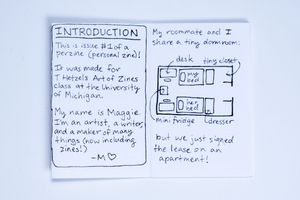 INTRODUCTION
This is issue #1 of a
perzine (personal zine)!
It was made for
T Hetzel's Art of Zines
class at the University
of Michigan.
My name is Maggie.
I'm an artist, a writer,
and a maker of many
things (now including
zines!)
-M♡
My roommate and I
share a tiny dorm room:
desk
tiny closet
my bed
her bed
mini fridge
dresser
but we just signed
the lease on an
apartment!